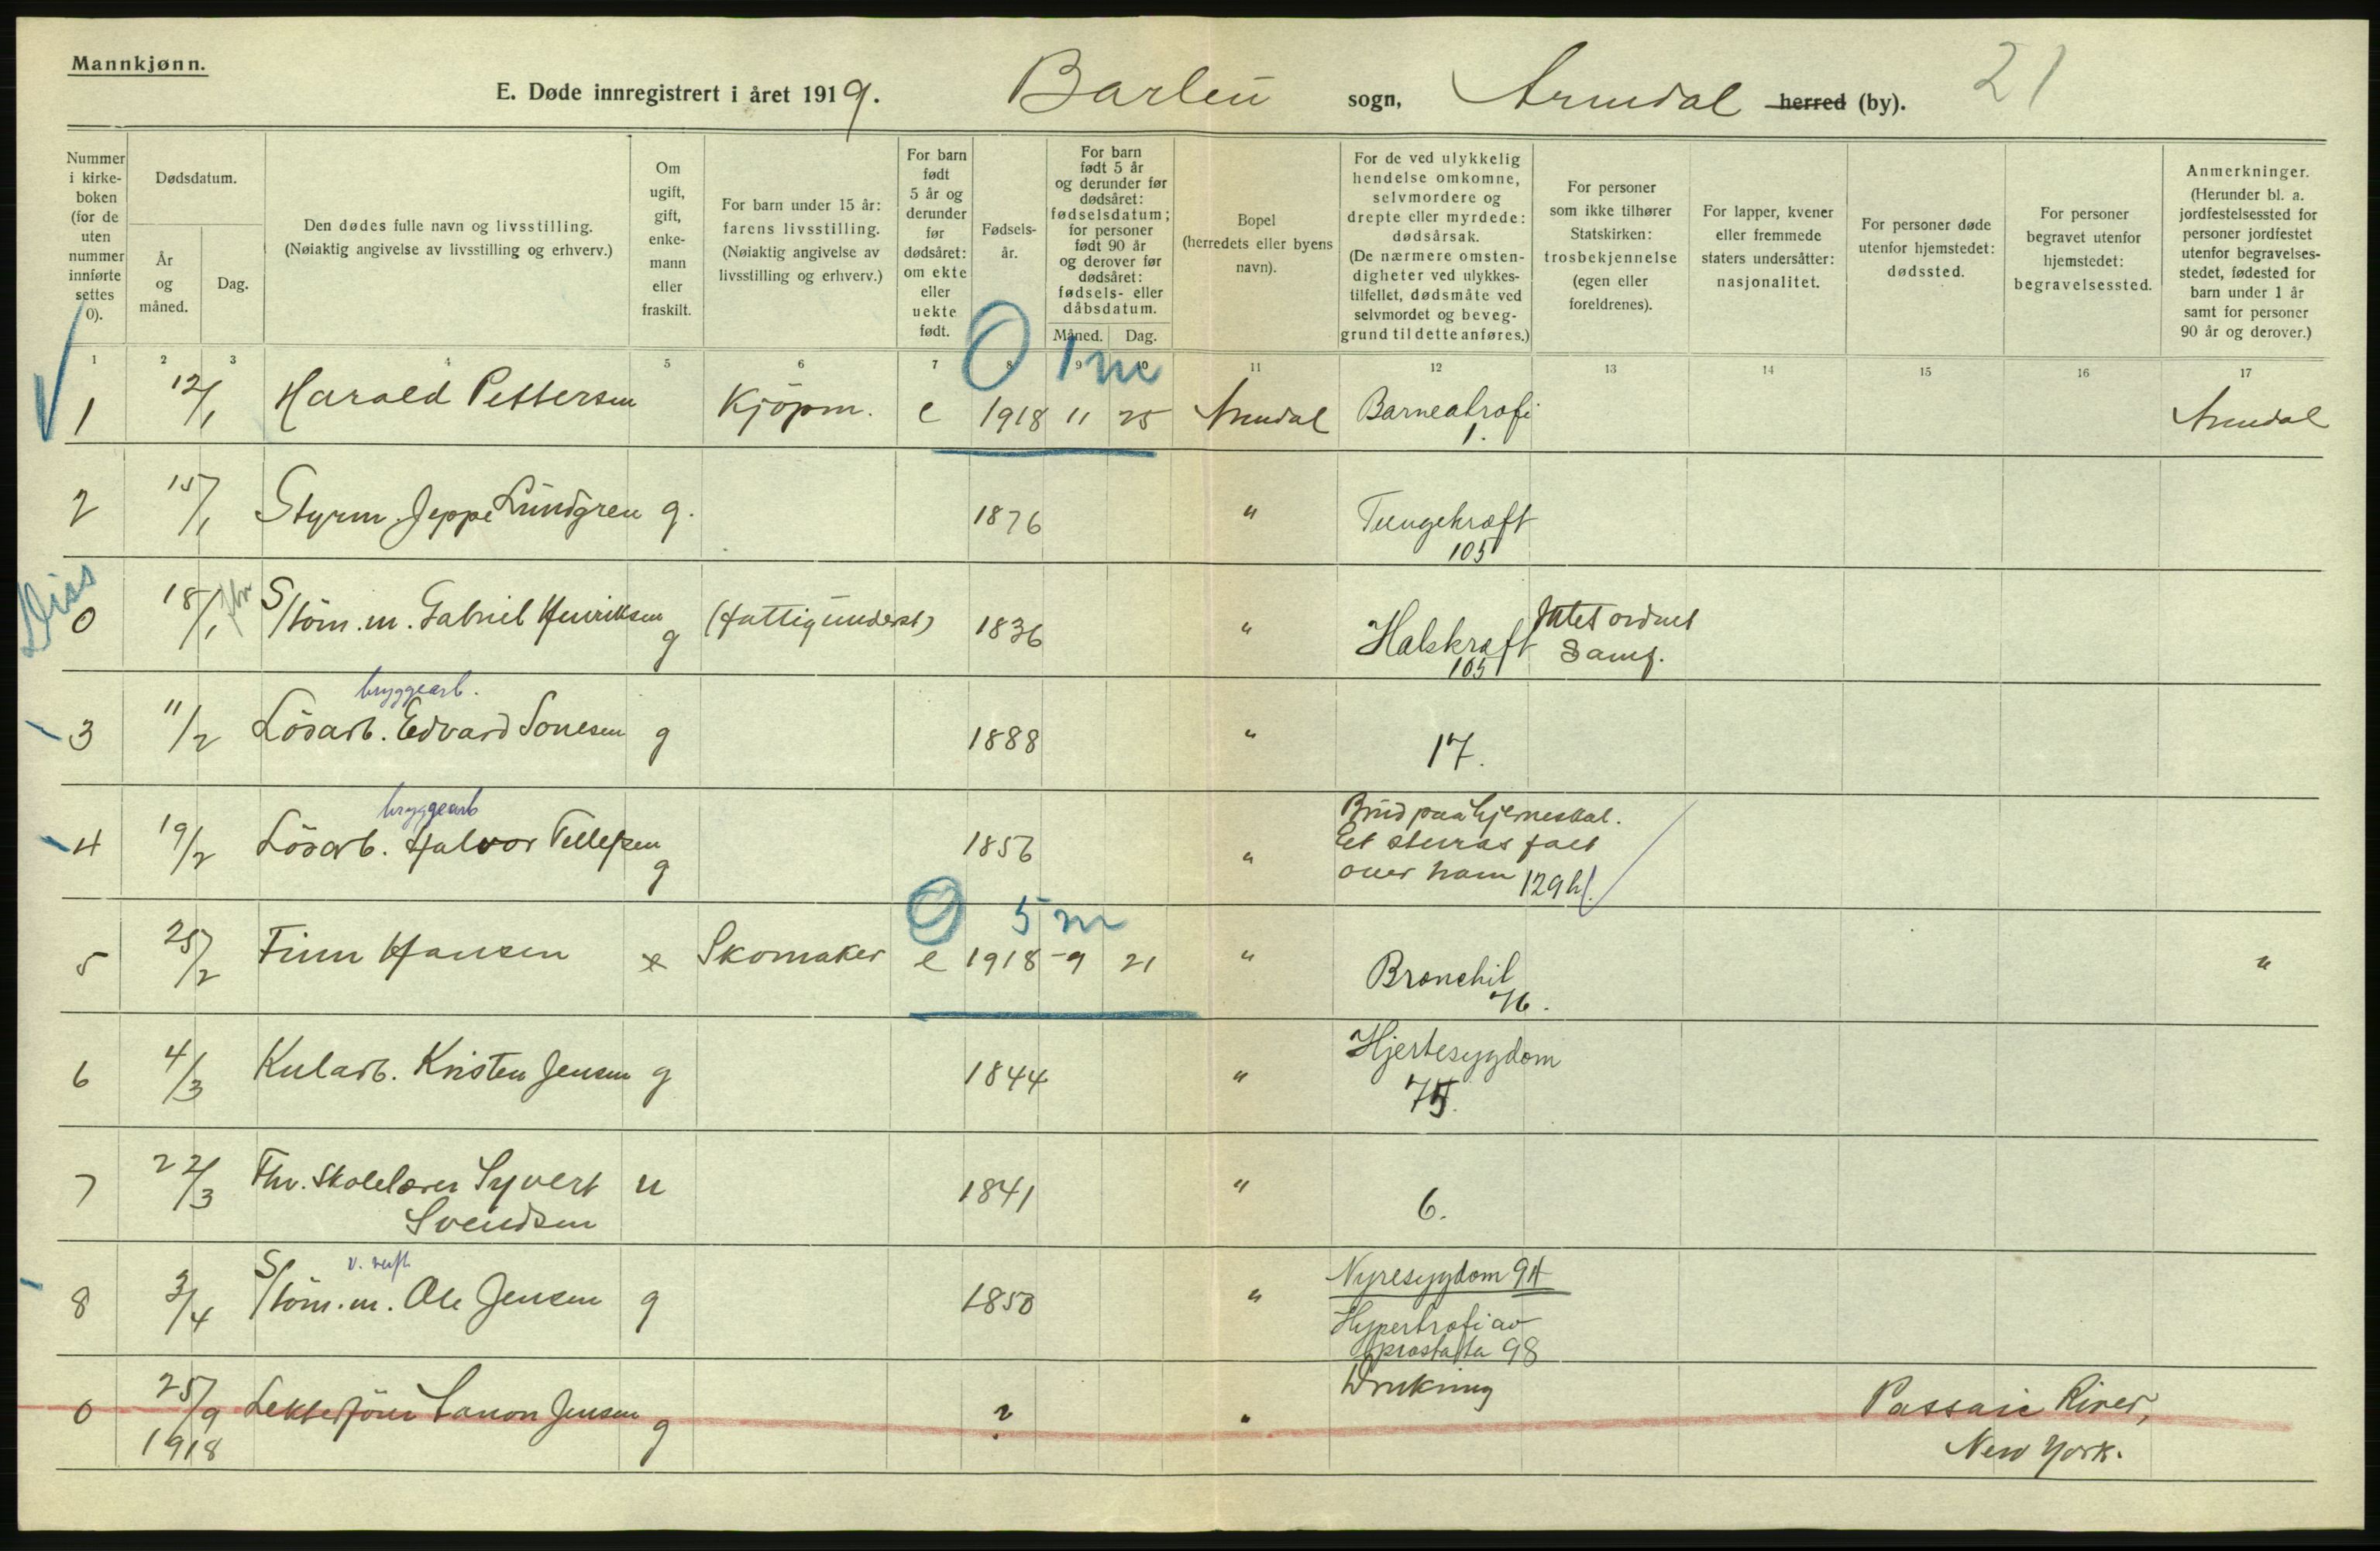 Mannkjønn.
E. Døde innregistrert i året 1919. Barbu sogn, Arendal herred (by). 21
Nummer i kirke-boken (for de uten nummer innførte settes 0).
Dødsdatum.
År og måned.
Dag.
Den dødes fulle navn og livsstilling.
(Nøiaktig angivelse av livsstilling og erhverv.)
Om ugift, gift, enke-mann eller fraskilt.
For barn under 15 år: farens livsstilling.
(Nøiaktig angivelse av livsstilling og erhverv.)
For barn født 5 år og derunder før dødsåret: om ekte eller uekte født.
Fødsels-år.
For barn født 5 år og derunder før dødsåret: fødselsdatum; for personer født 90 år og derover før dødsåret: fødsels- eller dåbsdatum.
Måned. Dag.
Bopel (herredets eller byens navn).
For de ved ulykkelig hendelse omkomne, selvmordere og drepte eller myrdede: dødsårsak.
(De nærmere omsten-digheter ved ulykkes-tilfellet, dødsmåte ved selvmordet og beveg-grund til dette anføres.)
For personer som ikke tilhører Statskirken: trosbekjennelse (egen eller foreldrenes).
For lapper, kvener eller fremmede staters undersåtter: nasjonalitet.
For personer døde utenfor hjemstedet: dødssted.
For personer begravet utenfor hjemstedet: begravelsessted.
Anmerkninger.
(Herunder bl. a. jordfestelsessted for personer jordfestet utenfor begravelses-stedet, fødested for barn under 1 år samt for personer 90 år og derover.)
1 2 3 4 5 6 7 8 9 10 11 12 13 14 15 16 17
0 1 m
1 12/1 Harald Pettersen Kjöpm. e 1918 11 25 Arendal Barneatrofi Arendal
1.
2 15/1 Styrm. Jeppe Lundgren g. 1876 " Tungekræft
105
Diss
0 18/1 Tömm. Gabriel Henriksen g (Fattigunderst) 1836 " Halskræft Intet ordnet
105 Samf.
bryggearb.
3 11/2 Lösarb. Edvard Tonesen g 1888 "
17.
bryggearb
4 19/2 Lösarb. Halvor Tellefsen g 1856 " Brud paa hjerneskal.
Et steinras falt
over ham 129 h/.
0 5 m
5 25/2 Finn Hansen x Skomaker e 1918 - 9 21 " Bronchit "
76.
6 4/3 Kularb. Kristen Jensen g 1844 " Hjertesygdom
75.
7 22/3 Fhv. Skolelærer Syvert u 1841 "
Svendsen 6.
v. verft
8 3/4 Tömm. Ole Jensen g 1850 " Nyresygdom 94
Hypertrofi av
prostata 98
0 25/9 Lekterförer Sanon Jensen g ? " Drukning Passaic River,
1918 New York.